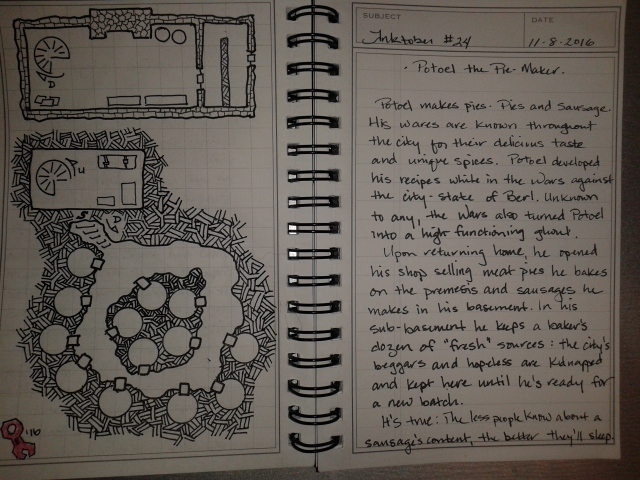 SUBJECT
DATE
Inktober #24
11-8-2016
· Potoel the Pie-Maker.
Potoel makes pies. Pies and sausage.
His wares are known throughout
the city for their delicious taste
and unique spices. Potoel developed
his recipes while in the Wars against
the city-state of Berl. Unknown
to any, the Wars also turned Potoel
into a high functioning ghoul.
Upon returning home, he opened
his shop selling meat pies he bakes
on the premesis and sausages he
makes in his basement. In his
sub-basement he keps a baker's
dozen of "fresh" sources: the city's
beggars and hopeless are kidnapped
and kept here until he's ready for
a new batch.
It's true: The less people know about a
sausage's content, the better they'll sleep.
D
U
S
D